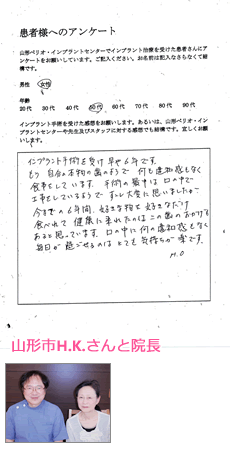 患者様へのアンケート
山形ペリオ・インプラントセンターでインプラント治療を受けた患者さんにア
ンケートをお願いしています。ご記入ください。お名前は記入なさらなくて結
構です。
男性 女性
年齢
20代 30代 40代 50代 60代 70代 80代 90代
インプラント手術を受けた感想をお願いします。あるいは、山形ペリオ・イン
プラントセンターや先生及びスタッフに対する感想でも結構です。宜しくお願
いします。
インプラント手術を受け早や6年です。
もう自分の本物の歯のようで 何も違和感もなく
食事をしています。手術の最中は口の中で
工事をしているようで すごく大変に思いましたが
今までの6年間、好きな物を好きなだけ
食べれて 健康に来れたのはこの歯のおかげも
あると思っています。口の中に何の違和感もなく
毎日が過ごせるのは とても気持ちが楽です。
山形市H.K.さんと院長